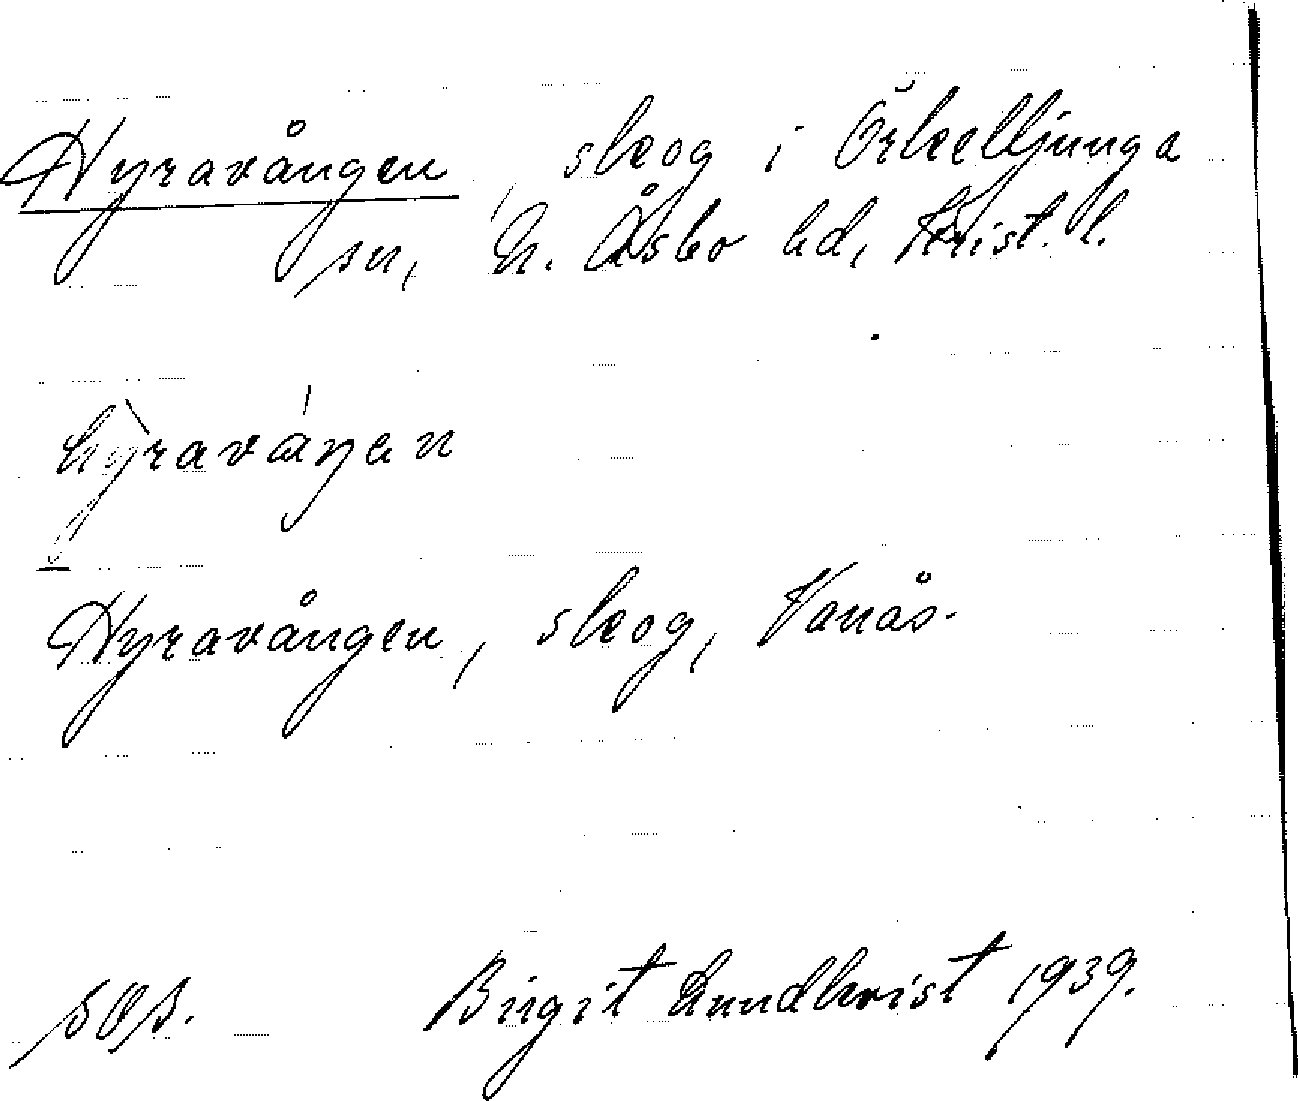 Hyravången, skog i Örkelljunga
sn, N. Åsbo hd, Krist. l.
hy̔ravάŋen
Hyravången, skog, Vanås.
Birgit Lundkvist 1939.